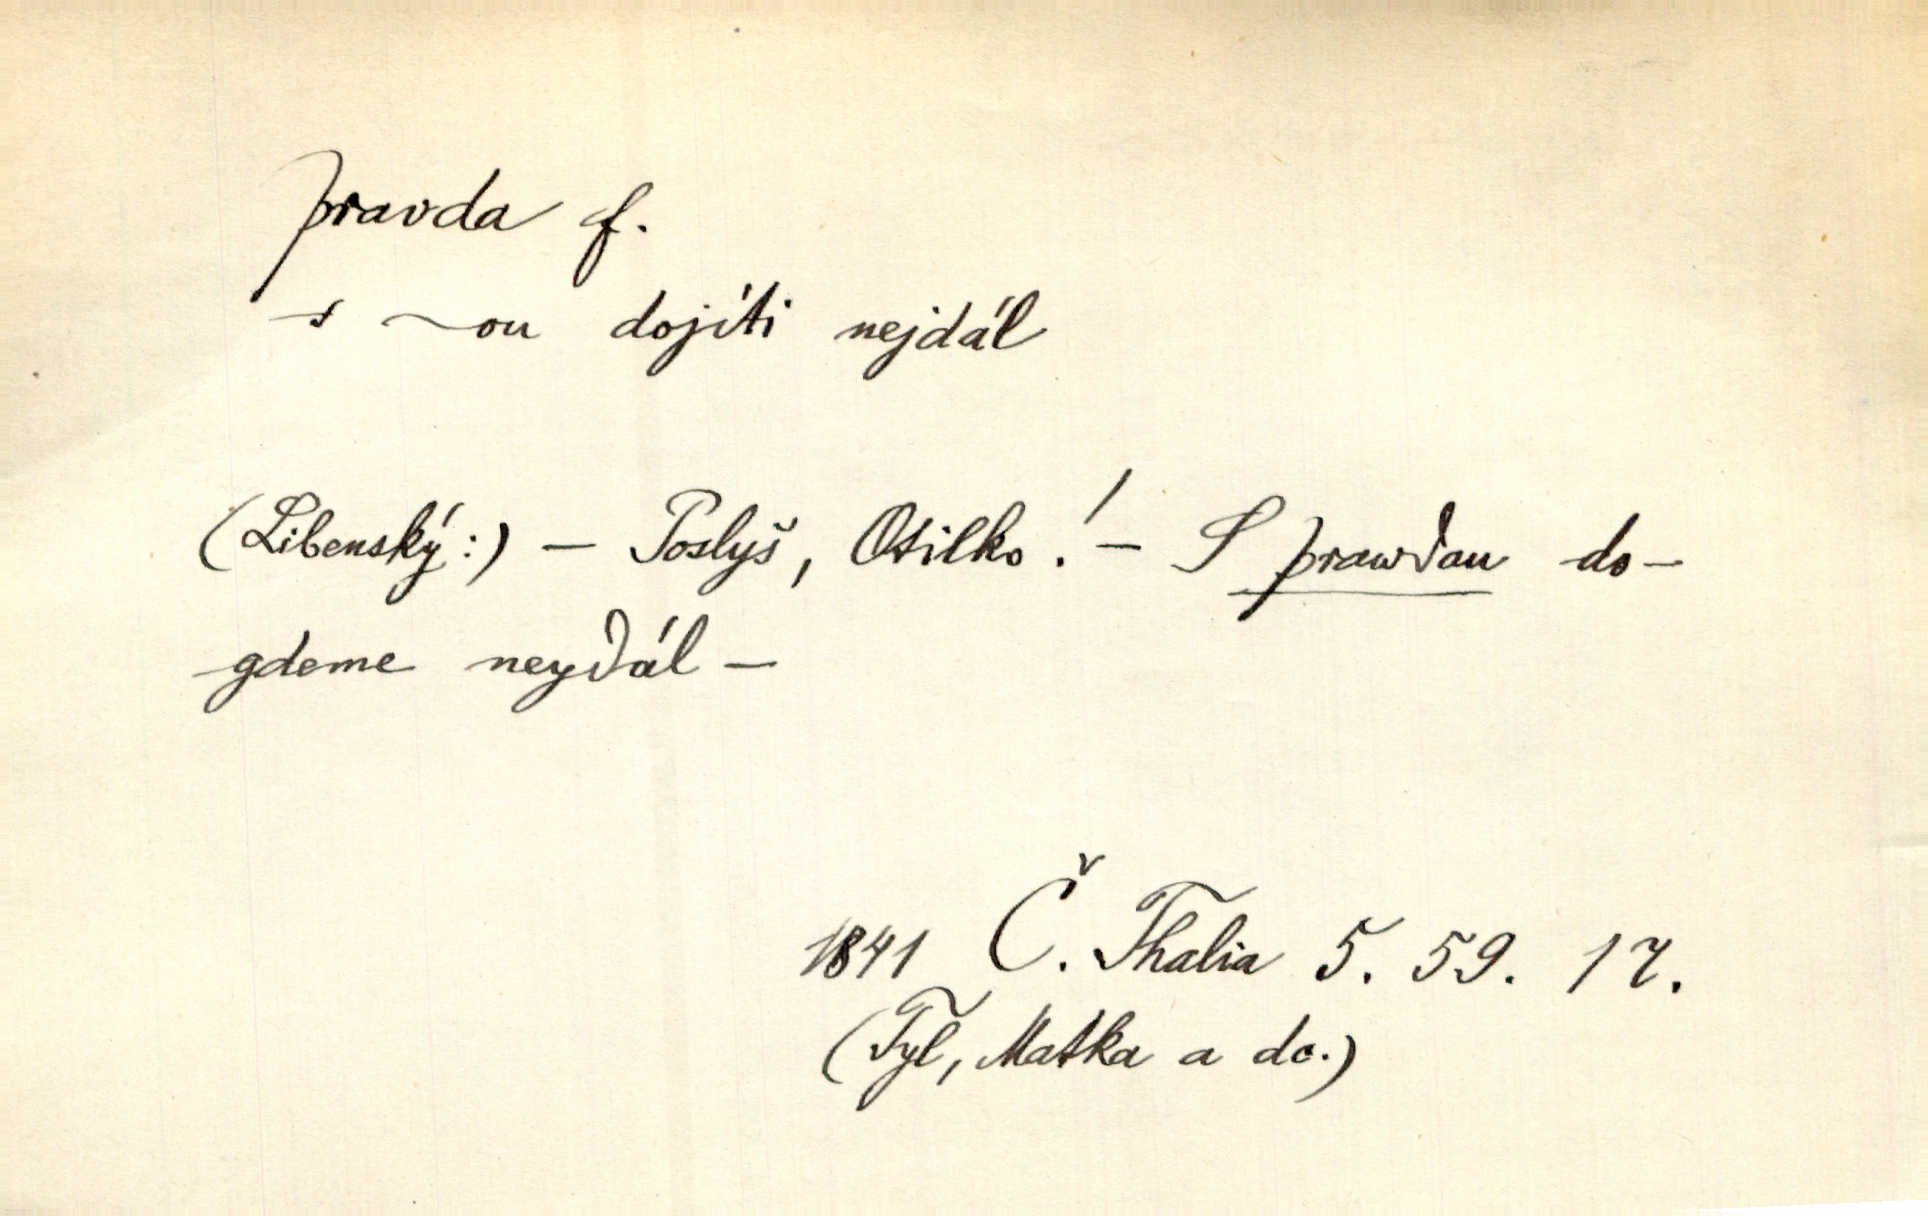 pravda f.
s ~ou dojíti nejdál
(Libenský:) – Poslyš, Otilko! – S prawdau do-
gdeme neydál –
1841 Č. Thalia 5. 59. 17.
(Tyl, Matka a dc.)